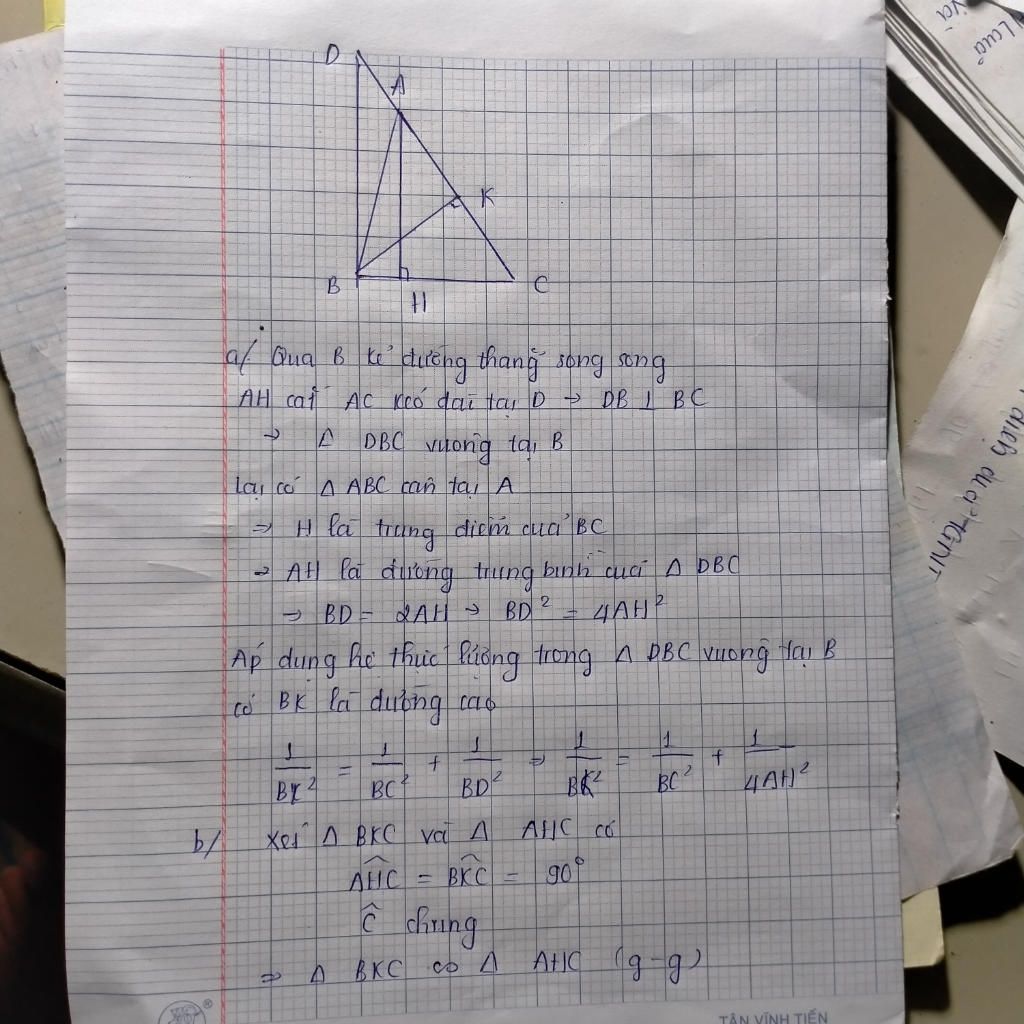 D
A
K
B
H
C
a/ Qua B kẻ đường thẳng song song
AH cắt AC kéo dài tại D → DB ⊥ BC
→ Δ DBC vuông tại B
Lại có Δ ABC cân tại A
⇒ H là trung điểm của BC
→ AH là đường trung bình của Δ DBC
→ BD = 2AH → BD² = 4AH²
Áp dụng hệ thực lượng trong Δ DBC vuông tại B
có BK là đường cao
1/BK² = 1/BC² + 1/BD² ⇒ 1/BK² = 1/BC² + 1/4AH²
b/ Xét Δ BKC và Δ AHC có
AHC = BKC = 90°
Ĉ chung
⇒ Δ BKC ∽ Δ AHC (g-g)
TÂN VĨNH TIẾN